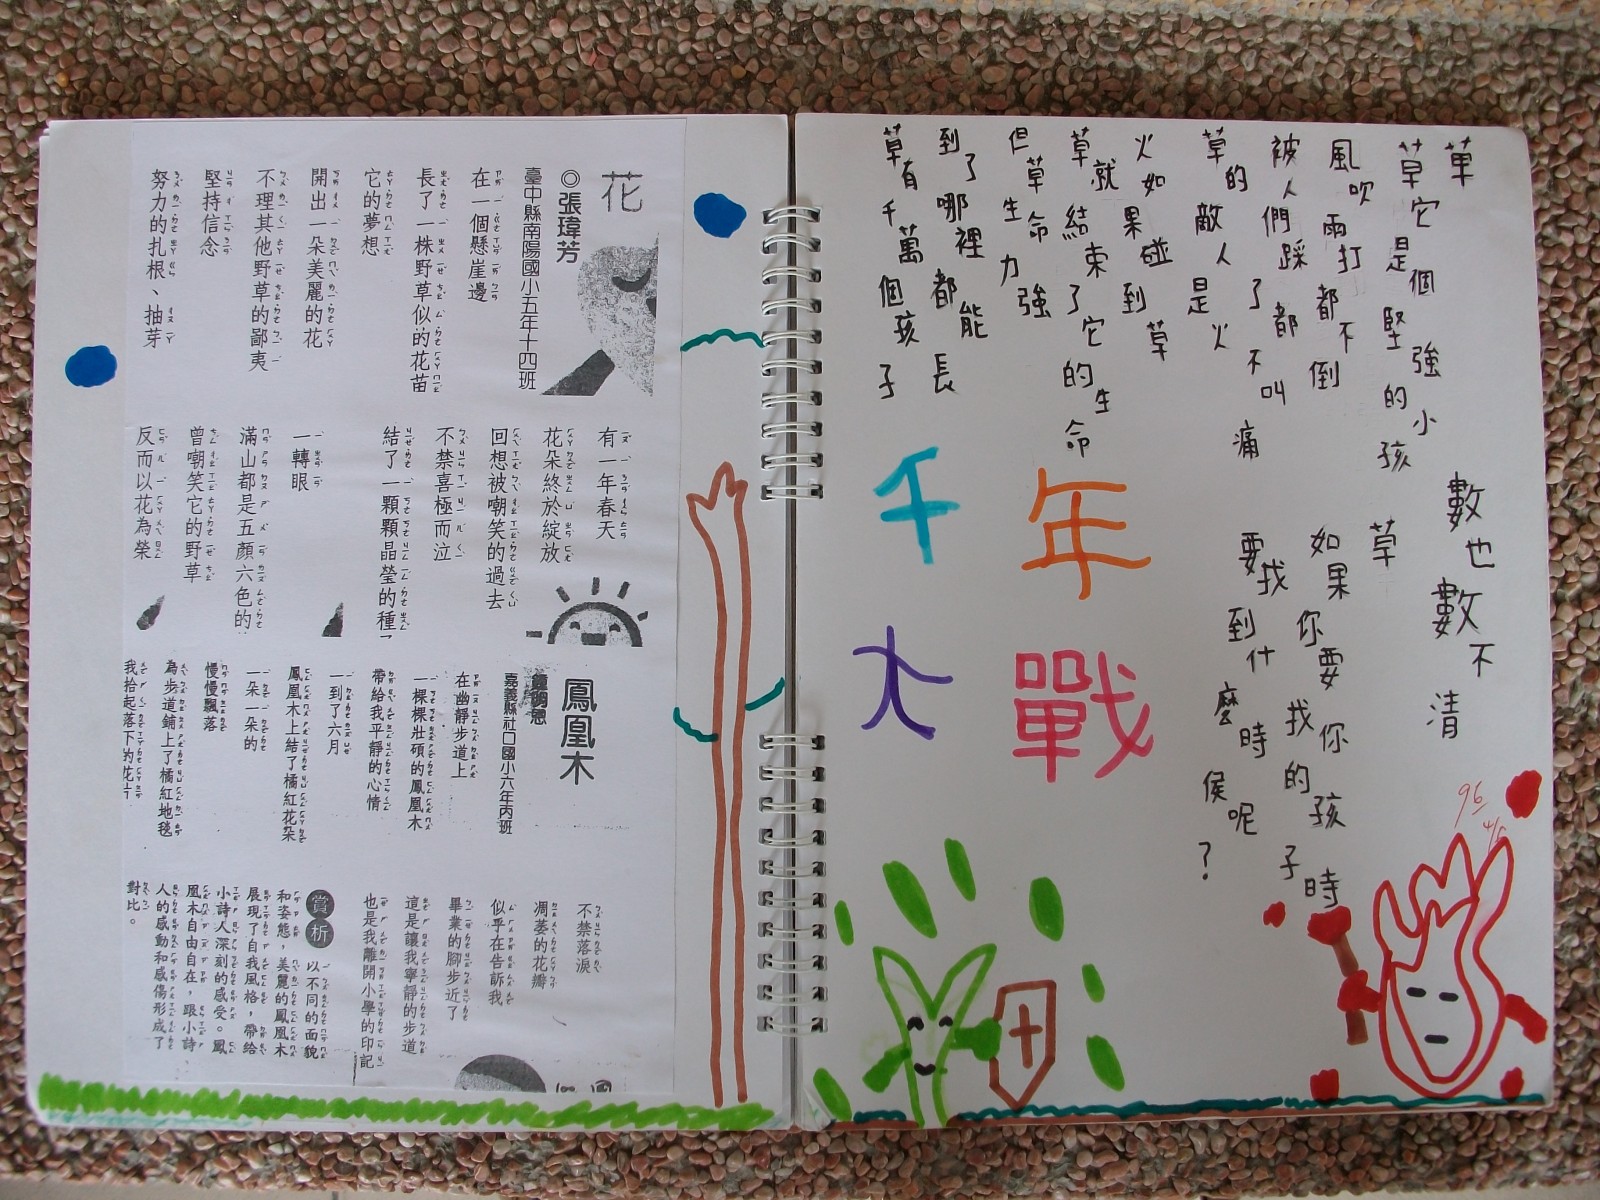 草
草它是個堅強的小孩
風吹雨打都不倒
被人們踩了都不叫痛
草的敵人是火
火如果碰到草
草就結束了它的生命
但草生命力強
到了哪裡都能長
草有千萬個孩子
數也數不清
草
如果你要找你的孩子時
要找到什麼時侯呢?
千年
大戰
96
花
◎張瑋芳
臺中縣南陽國小五年十四班
在一個懸崖邊
長了一株野草似的花苗
它的夢想
開出一朵美麗的花
不理其他野草的鄙夷
堅持信念
努力的扎根、抽芽
有一年春天
花朵終於綻放
回想被嘲笑的過去
不禁喜極而泣
結了一顆顆晶瑩的種
一轉眼
滿山都是五顏六色的
曾嘲笑它的野草
反而以花為榮
鳳凰木
嘉義縣社口國小六年丙班
在幽靜步道上
一棵棵壯碩的鳳凰木
帶給我平靜的心情
一到了六月
鳳凰木上結了橘紅花朵
一朵一朵的
慢慢飄落
為步道鋪上了橘紅地毯
我拾起落下的花片
不禁落淚
凋萎的花瓣
似乎在告訴我
畢業的腳步近了
這是讓我寧靜的步道
也是我離開小學的印記
賞析
以不同的面貌
和姿態，美麗的鳳凰木
展現了自我風格，帶給
小詩人深刻的感受。鳳
凰木自由自在，跟小詩
人的感動和感傷形成了
對比。